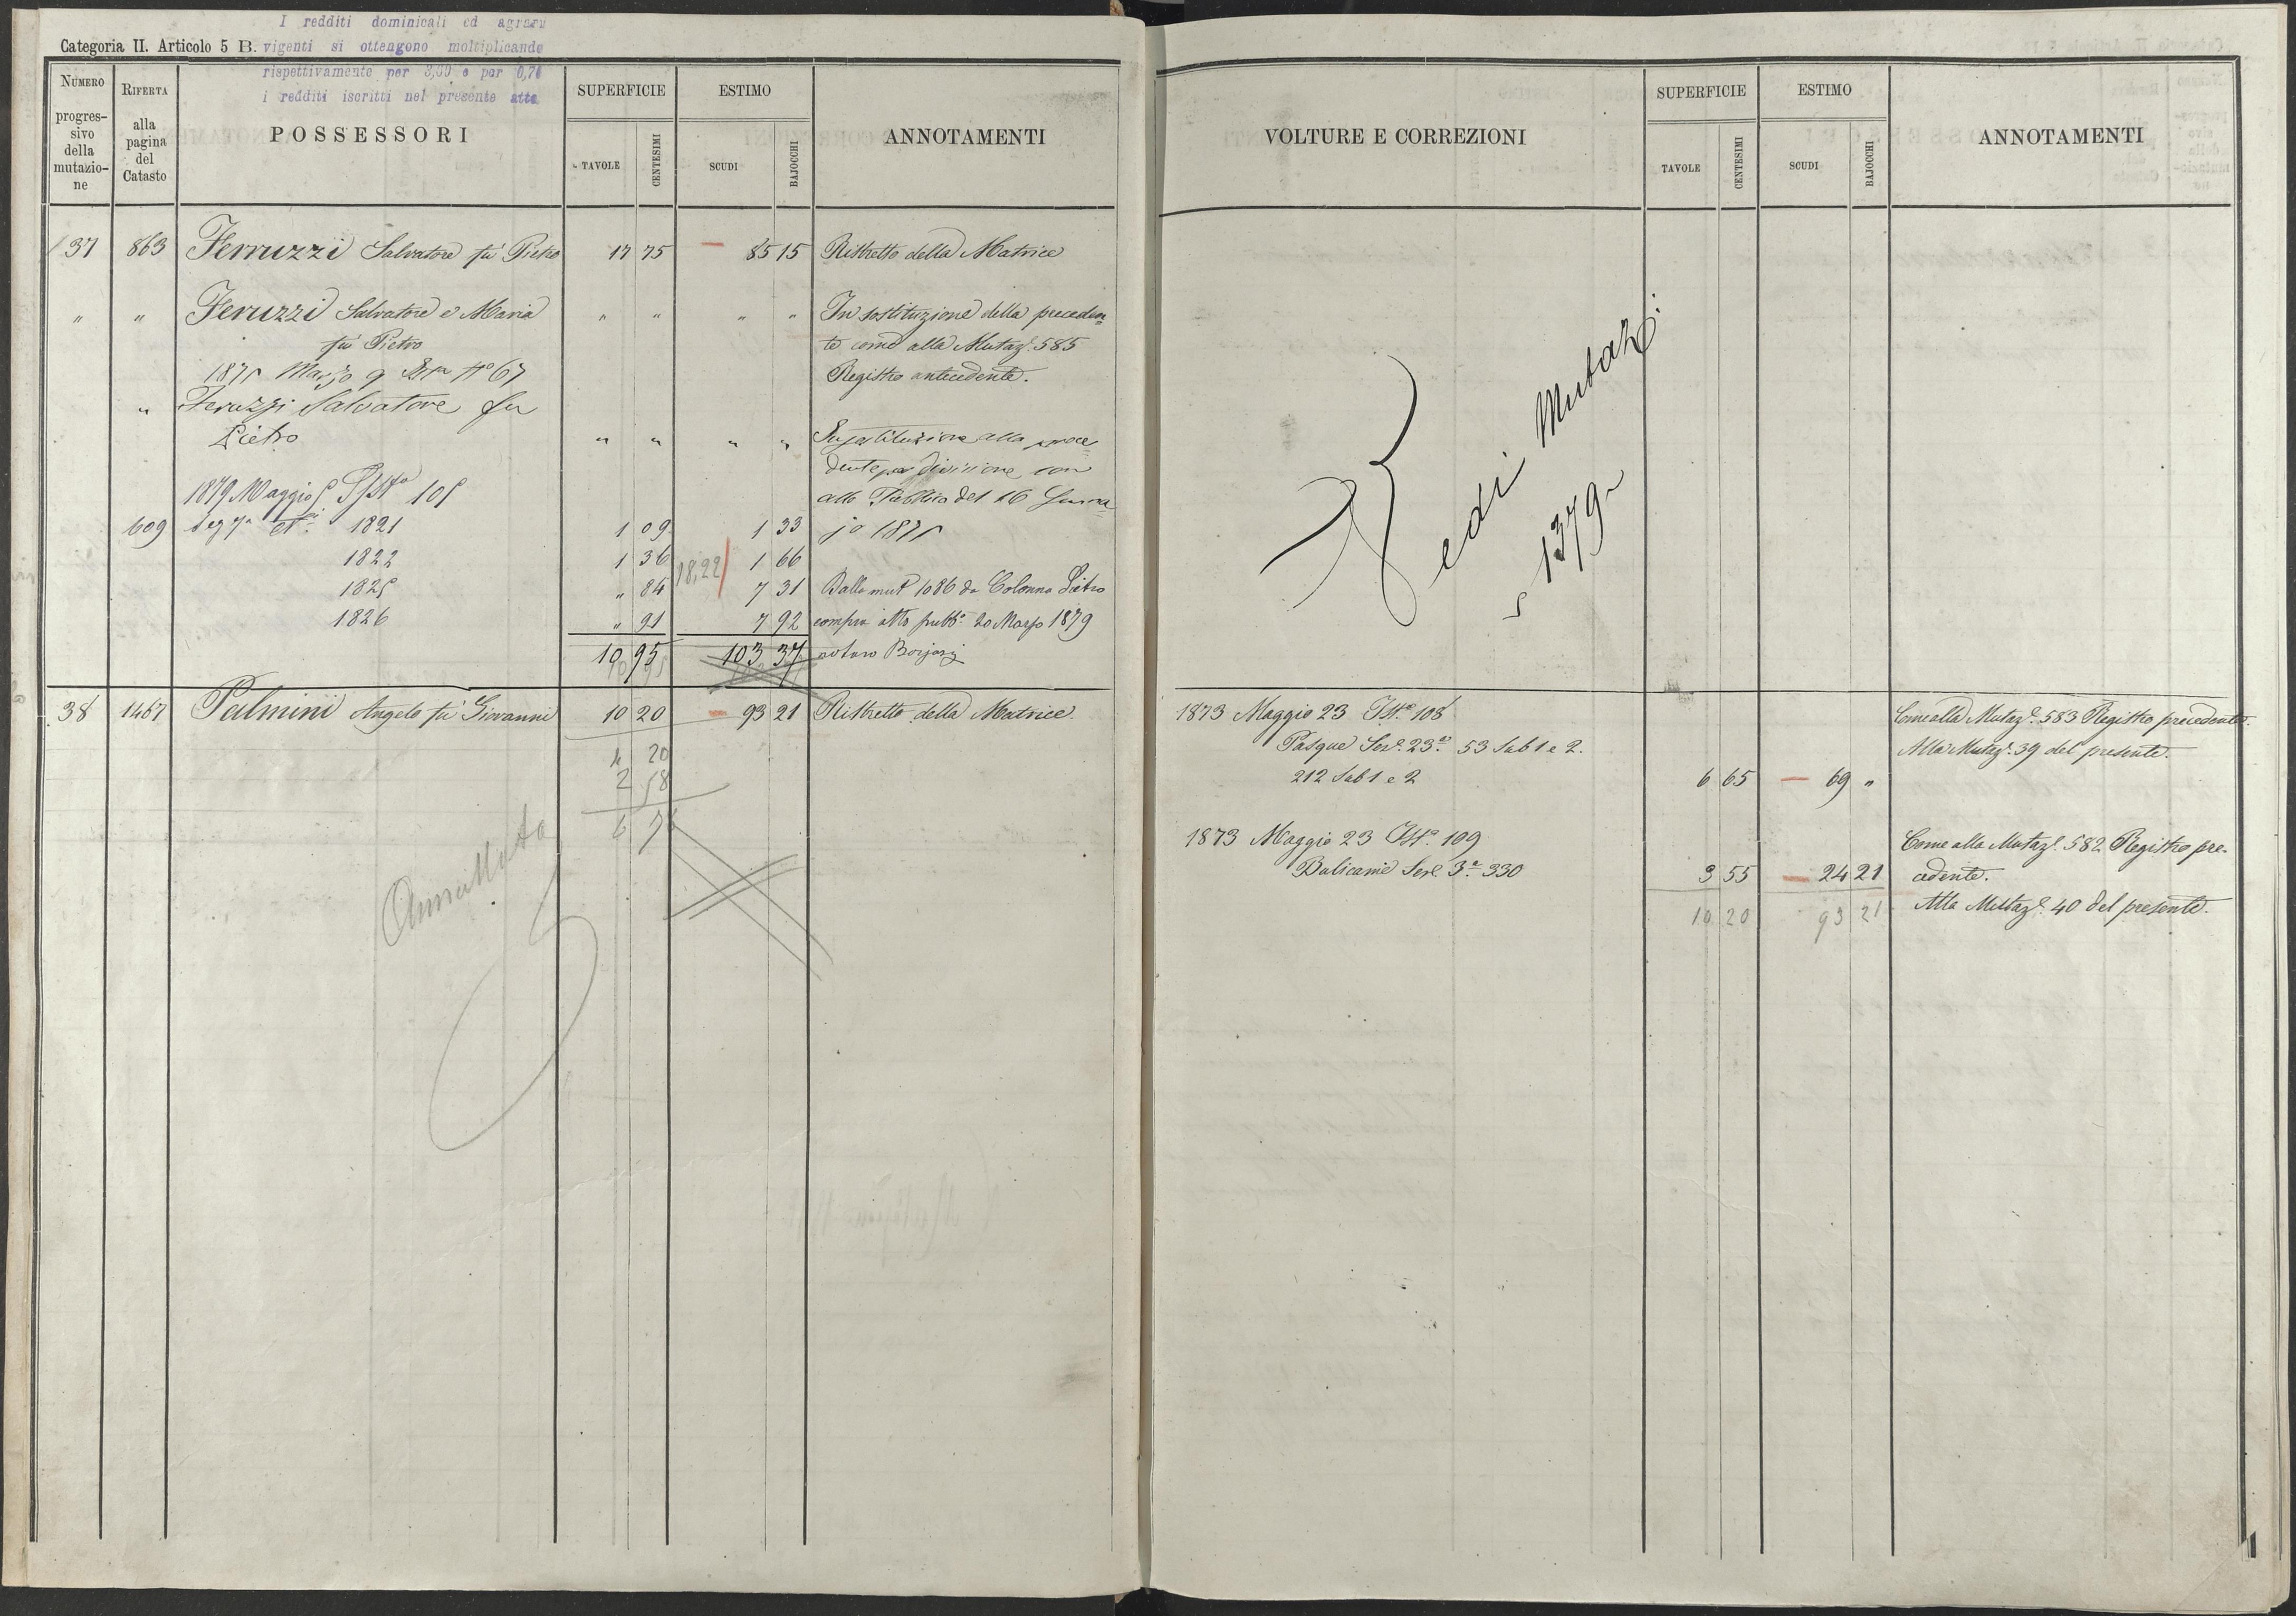 I redditi dominicali ed agrari
Categoria II. Articolo 5 B. vigenti si ottengono moltiplicando
rispettivamente per 3,60 e per 0,74
i redditi iscritti nel presente atto
NUMERO progressivo della mutazione
RIFERTA alla pagina del Catasto
POSSESSORI
SUPERFICIE
TAVOLE
CENTESIMI
ESTIMO
SCUDI
BAJOCCHI
ANNOTAMENTI
37 863 Ferruzzi Salvatore fu Pietro 17 75 85 15 Ristretto della Matrice
" " Feruzzi Salvatore e Maria " " " " In sostituzione della preceden
fu Pietro te come alla Mutaz.e 585
1875 Marzo 9 N° 67 Registro antecedente.
" Feruzzi Salvatore fu
Pietro " " " " In sostituzione alla prece
dente per divisione con
1879 Maggio 5 105 atto Pubblico del 16 Genna
609 1821 1 09 1 33 jo 1875
1822 1 36 18,22 1 66
1825 " 84 7 31 Dalla mut.e 1086 da Colonna Pietro
1826 " 91 7 92 compra atto pubb.o 20 Marzo 1879
10 95 103 37
38 1467 Palmini Angelo fu Giovanni 10 20 93 21 Ristretto della Matrice.
4 20
2 58
6 78
Annullata
VOLTURE E CORREZIONI
SUPERFICIE
TAVOLE
CENTESIMI
ESTIMO
SCUDI
BAJOCCHI
ANNOTAMENTI
Vedi Mutaz.
1379
1873 Maggio 23 Ist.a 108 Come alla Mutaz.e 583 Registro precedente.
Pasque Sez.e 23.a 53 Sub 1 e 2. Alla Mutaz.e 39 del presente.
212 Sub 1 e 2 6 65 69 "
1873 Maggio 23 Ist.a 109 Come alla Mutaz.e 582 Registro pre-
Bulicame Sez.e 3.a 330 3 55 24 21 cedente.
10 20 93 21 Alla Mutaz.e 40 del presente.